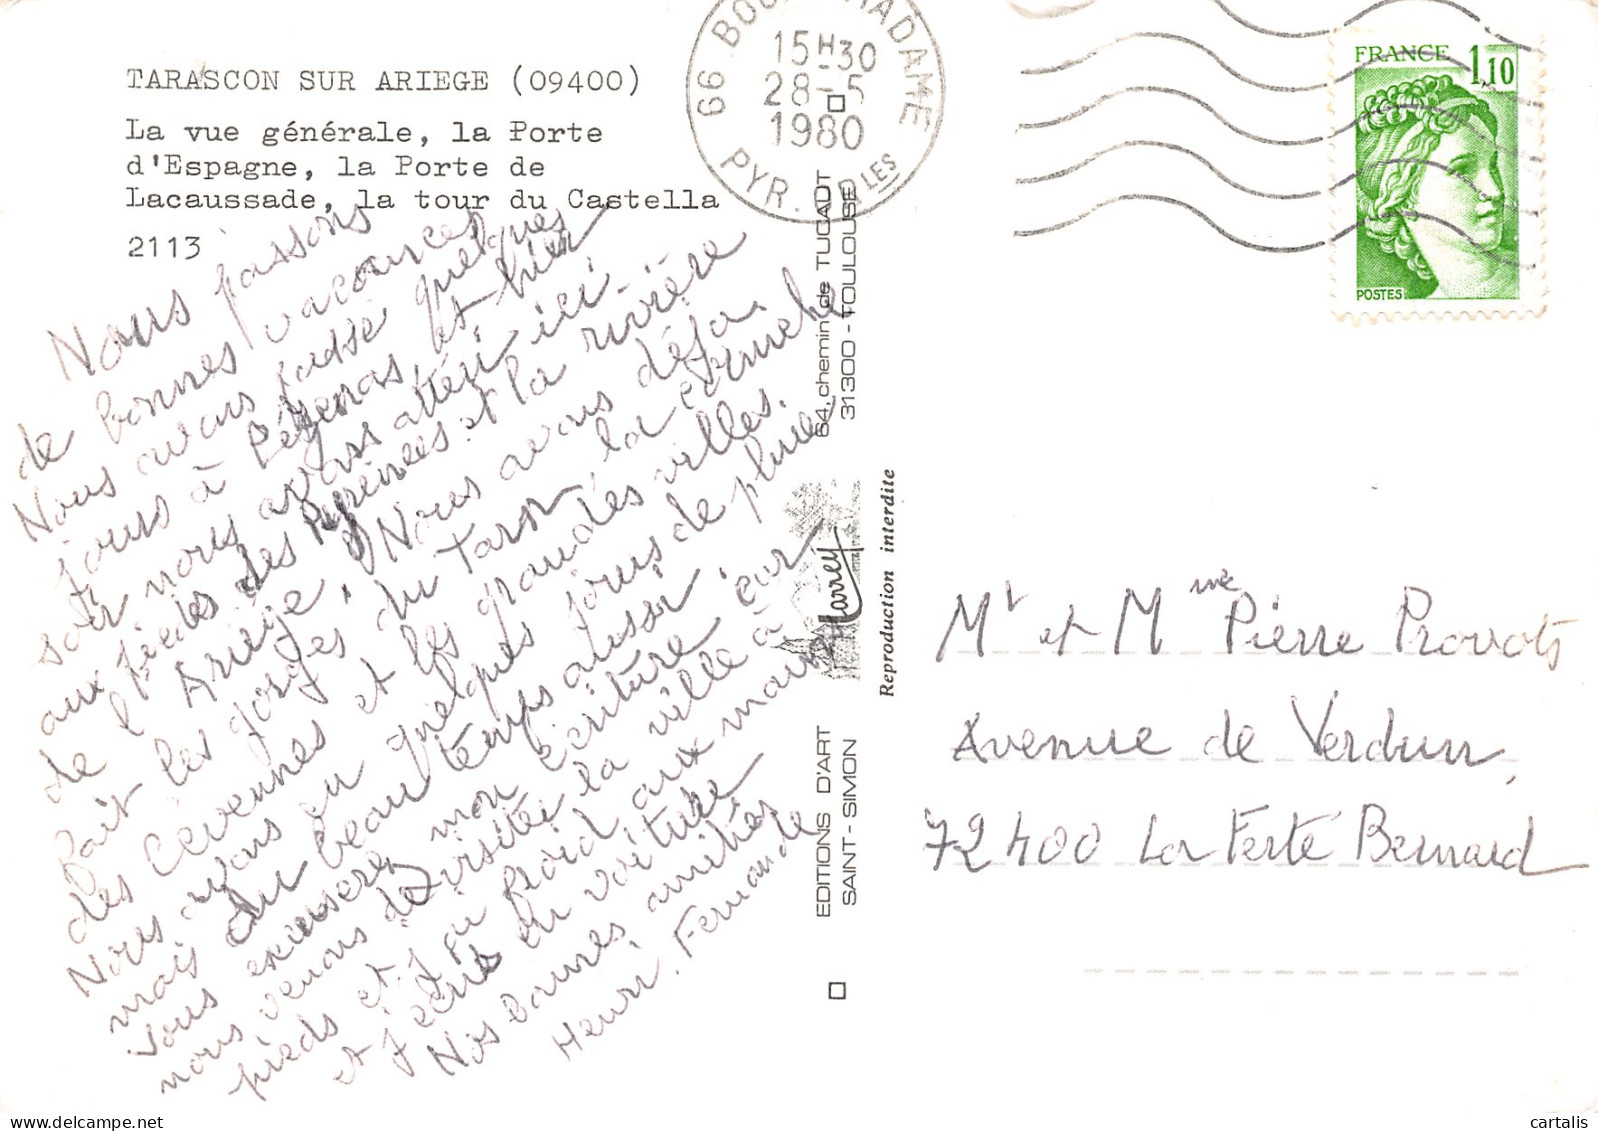 TARASCON SUR ARIEGE (09400)
La vue générale, la Porte
d'Espagne, la Porte de
Lacaussade, la tour du Castella
2113
Nous passons
de bonnes vacances
Nous avons passé quelques
jours à Pézenas, et hier
soir nous avons atteri ici.
aux pieds des Pyrénées et la rivière
de l'Ariège. Nous avons déjà
fait les gorges du Tarn, la corniche
des Cevennes et les grandes villes.
Nous avons eu quelques jours de pluie
mais du beau temps aussi.
Vous excuserez mon écriture car
nous venons de visiter la ville à
pieds et j'ai froid aux mains
et j'écris en voiture
Nos bonnes amitiés
Henri. Fernande
66 BOU MADAME
15H30
28-5
1980
PYR. LES
FRANCE 1,10
POSTES
EDITIONS D'ART
SAINT-SIMON
64, chemin de TUCAUT
31300 - TOULOUSE
Larrey
Reproduction interdite
Mr et Mme Pierre Provots
Avenue de Verdun,
72400 La Ferté Bernard
cartalis
delcampe.net